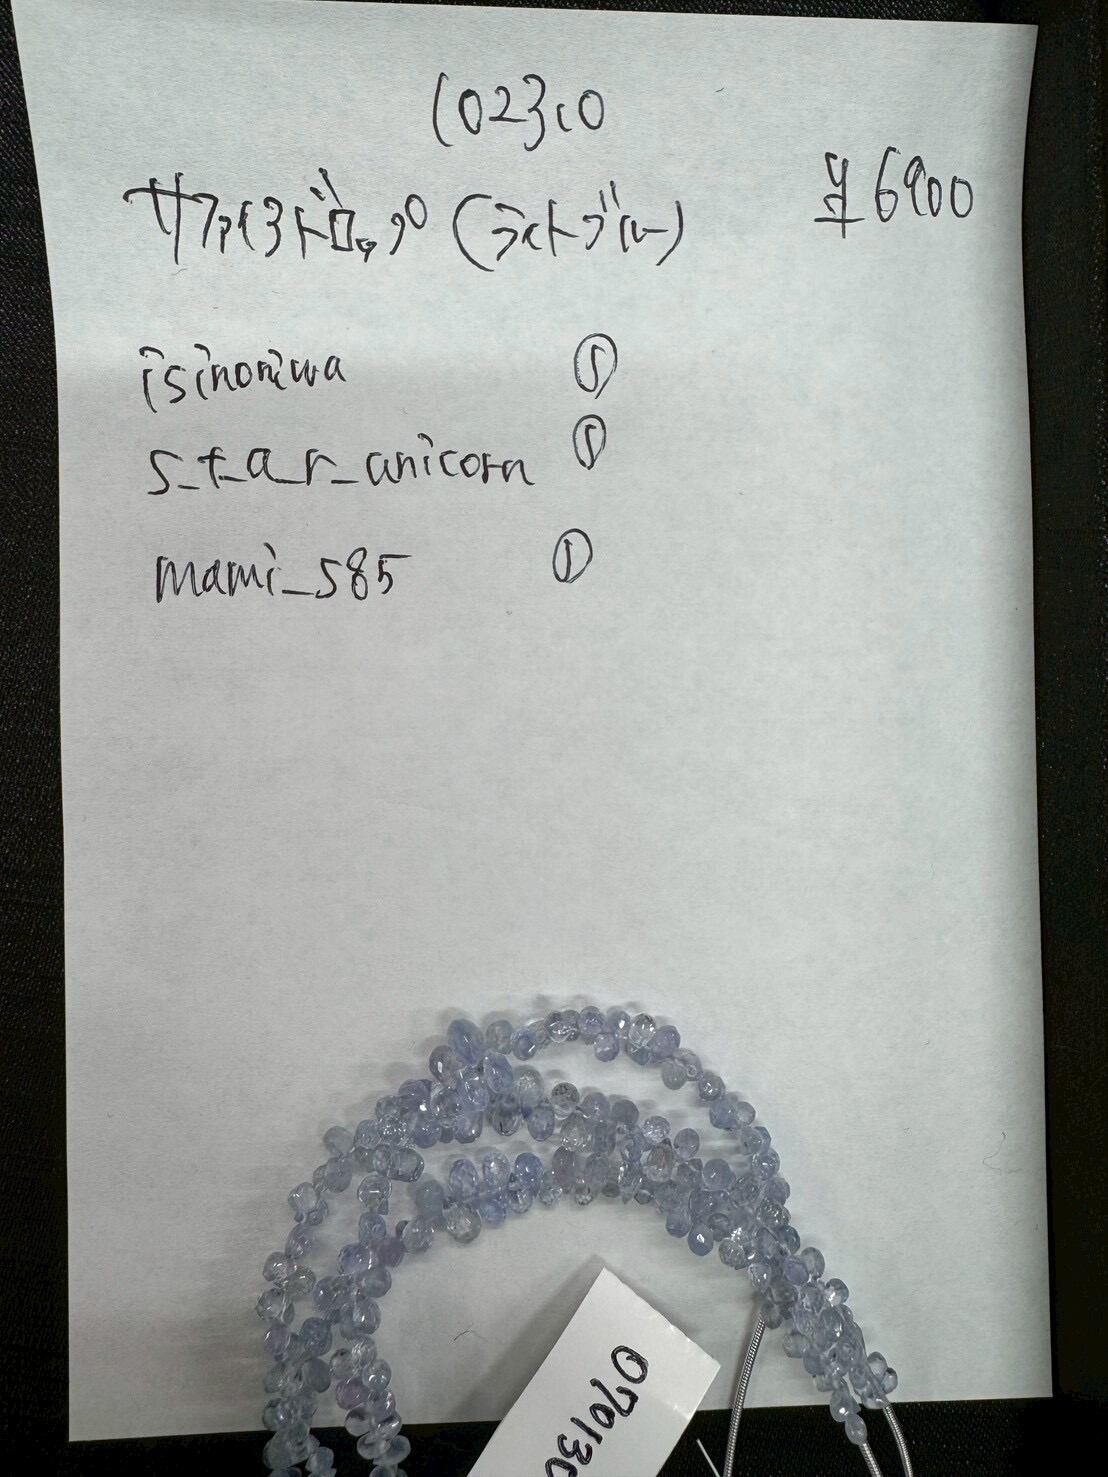 102310
サファイヤドロップ(ライトブルー) ¥6900
isinoniwa ①
s_t_a_r_unicorn ①
mami_s85 ①
070130